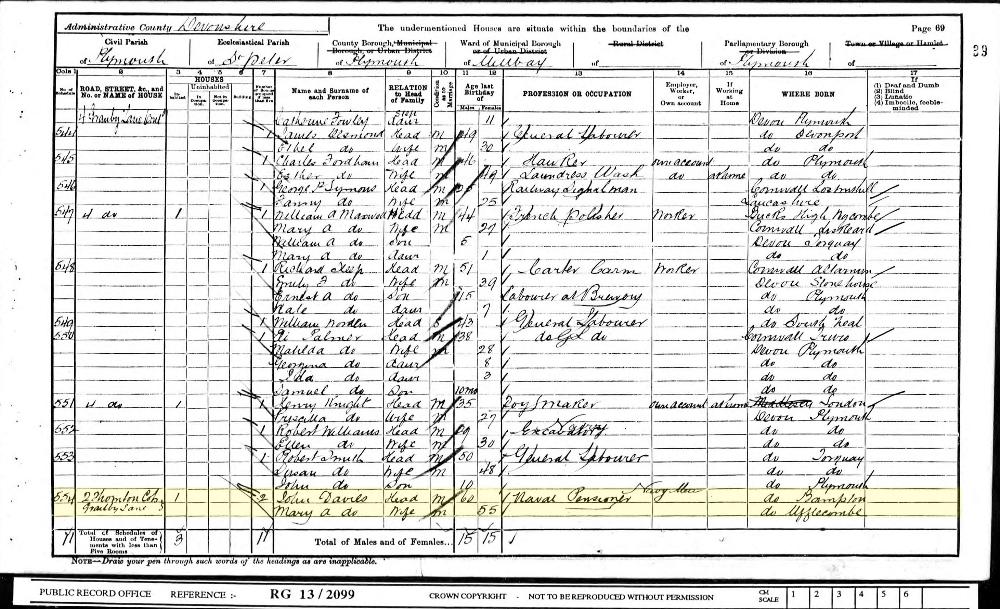 Administrative County Devonshire The undermentioned Houses are situate within the boundaries of the Page 69
Civil Parish Ecclesiastical Parish County Borough, Municipal Borough, or Urban District Ward of Municipal Borough or Urban District Rural District Parliamentary Borough or Division Town or Village or Hamlet
of Plymouth of St Peter of Plymouth of Millbay of of Plymouth of
39
Cols. 1 2 3 4 5 6 7 8 9 10 11 12 13 14 15 16 17
No. of Schedule ROAD, STREET, &c., and No. or NAME of HOUSE HOUSES Inhabited Uninhabited Name and Surname of each Person RELATION to Head of Family Condition as to Marriage Age last Birthday of Males Females PROFESSION OR OCCUPATION Employer, Worker, or Own account If Working at Home WHERE BORN If (1) Deaf and Dumb (2) Blind (3) Lunatic (4) Imbecile, feeble-minded
Catherine Fowley daur 11 Devon Plymouth
544 1 James Desmond Head M 49 General Labourer do Devonport
Ethel do Wife M 30 do do
545 1 Charles Fordham Head M 46 Hawker own account do Plymouth
Esther do Wife M 49 Laundress Wash do at home do do
546 1 George P Symons Head M Railway Signalman Cornwall
Fanny do Wife M 25 Lancashire
547 4 do 1 1 William A Head M 44 French Polisher Worker Bucks High Wycombe
Mary A do Wife M 27 Cornwall Liskeard
William A do Son 5 Devon Torquay
Mary A do daur 1 do do
548 1 Richard Head M 51 Carter Worker Cornwall
Emily F do Wife M 39 Devon Stonehouse
Ernest A do Son 15 Labourer at Brewery do Plymouth
Kate do daur 7 do do
549 1 William Head S 43 General Labourer do
550 1 Palmer Head M 38 do do Cornwall Truro
Matilda do Wife M 28 Devon Plymouth
Georgina do daur 8 do do
Ida do daur 3 do do
Samuel do Son 10mo do do
551 4 do 1 1 Henry Knight Head M 35 Toy maker own account at home Middlesex London
Priscilla do Wife M 27 Devon Plymouth
552 1 Robert Williams Head M 29 do do
Ellen do Wife M 30 do do
553 1 Robert Smith Head M 50 General Labourer do Torquay
Susan do Wife M 48 do do
John do Son 10 do Plymouth
554 2 Thornton Cotts 1 2 John Davies Head M 60 Naval Pensioner do Bampton
Granby Lane Mary A do Wife M 55 do Uffculmbe
11 Total of Schedules of Houses and of Tenements with less than Five Rooms 3 11 Total of Males and of Females... 15 15
NOTE—Draw your pen through such words of the headings as are inapplicable.
PUBLIC RECORD OFFICE REFERENCE :- RG 13/2099 CROWN COPYRIGHT - NOT TO BE REPRODUCED WITHOUT PERMISSION CM SCALE 1 2 3 4 5 6